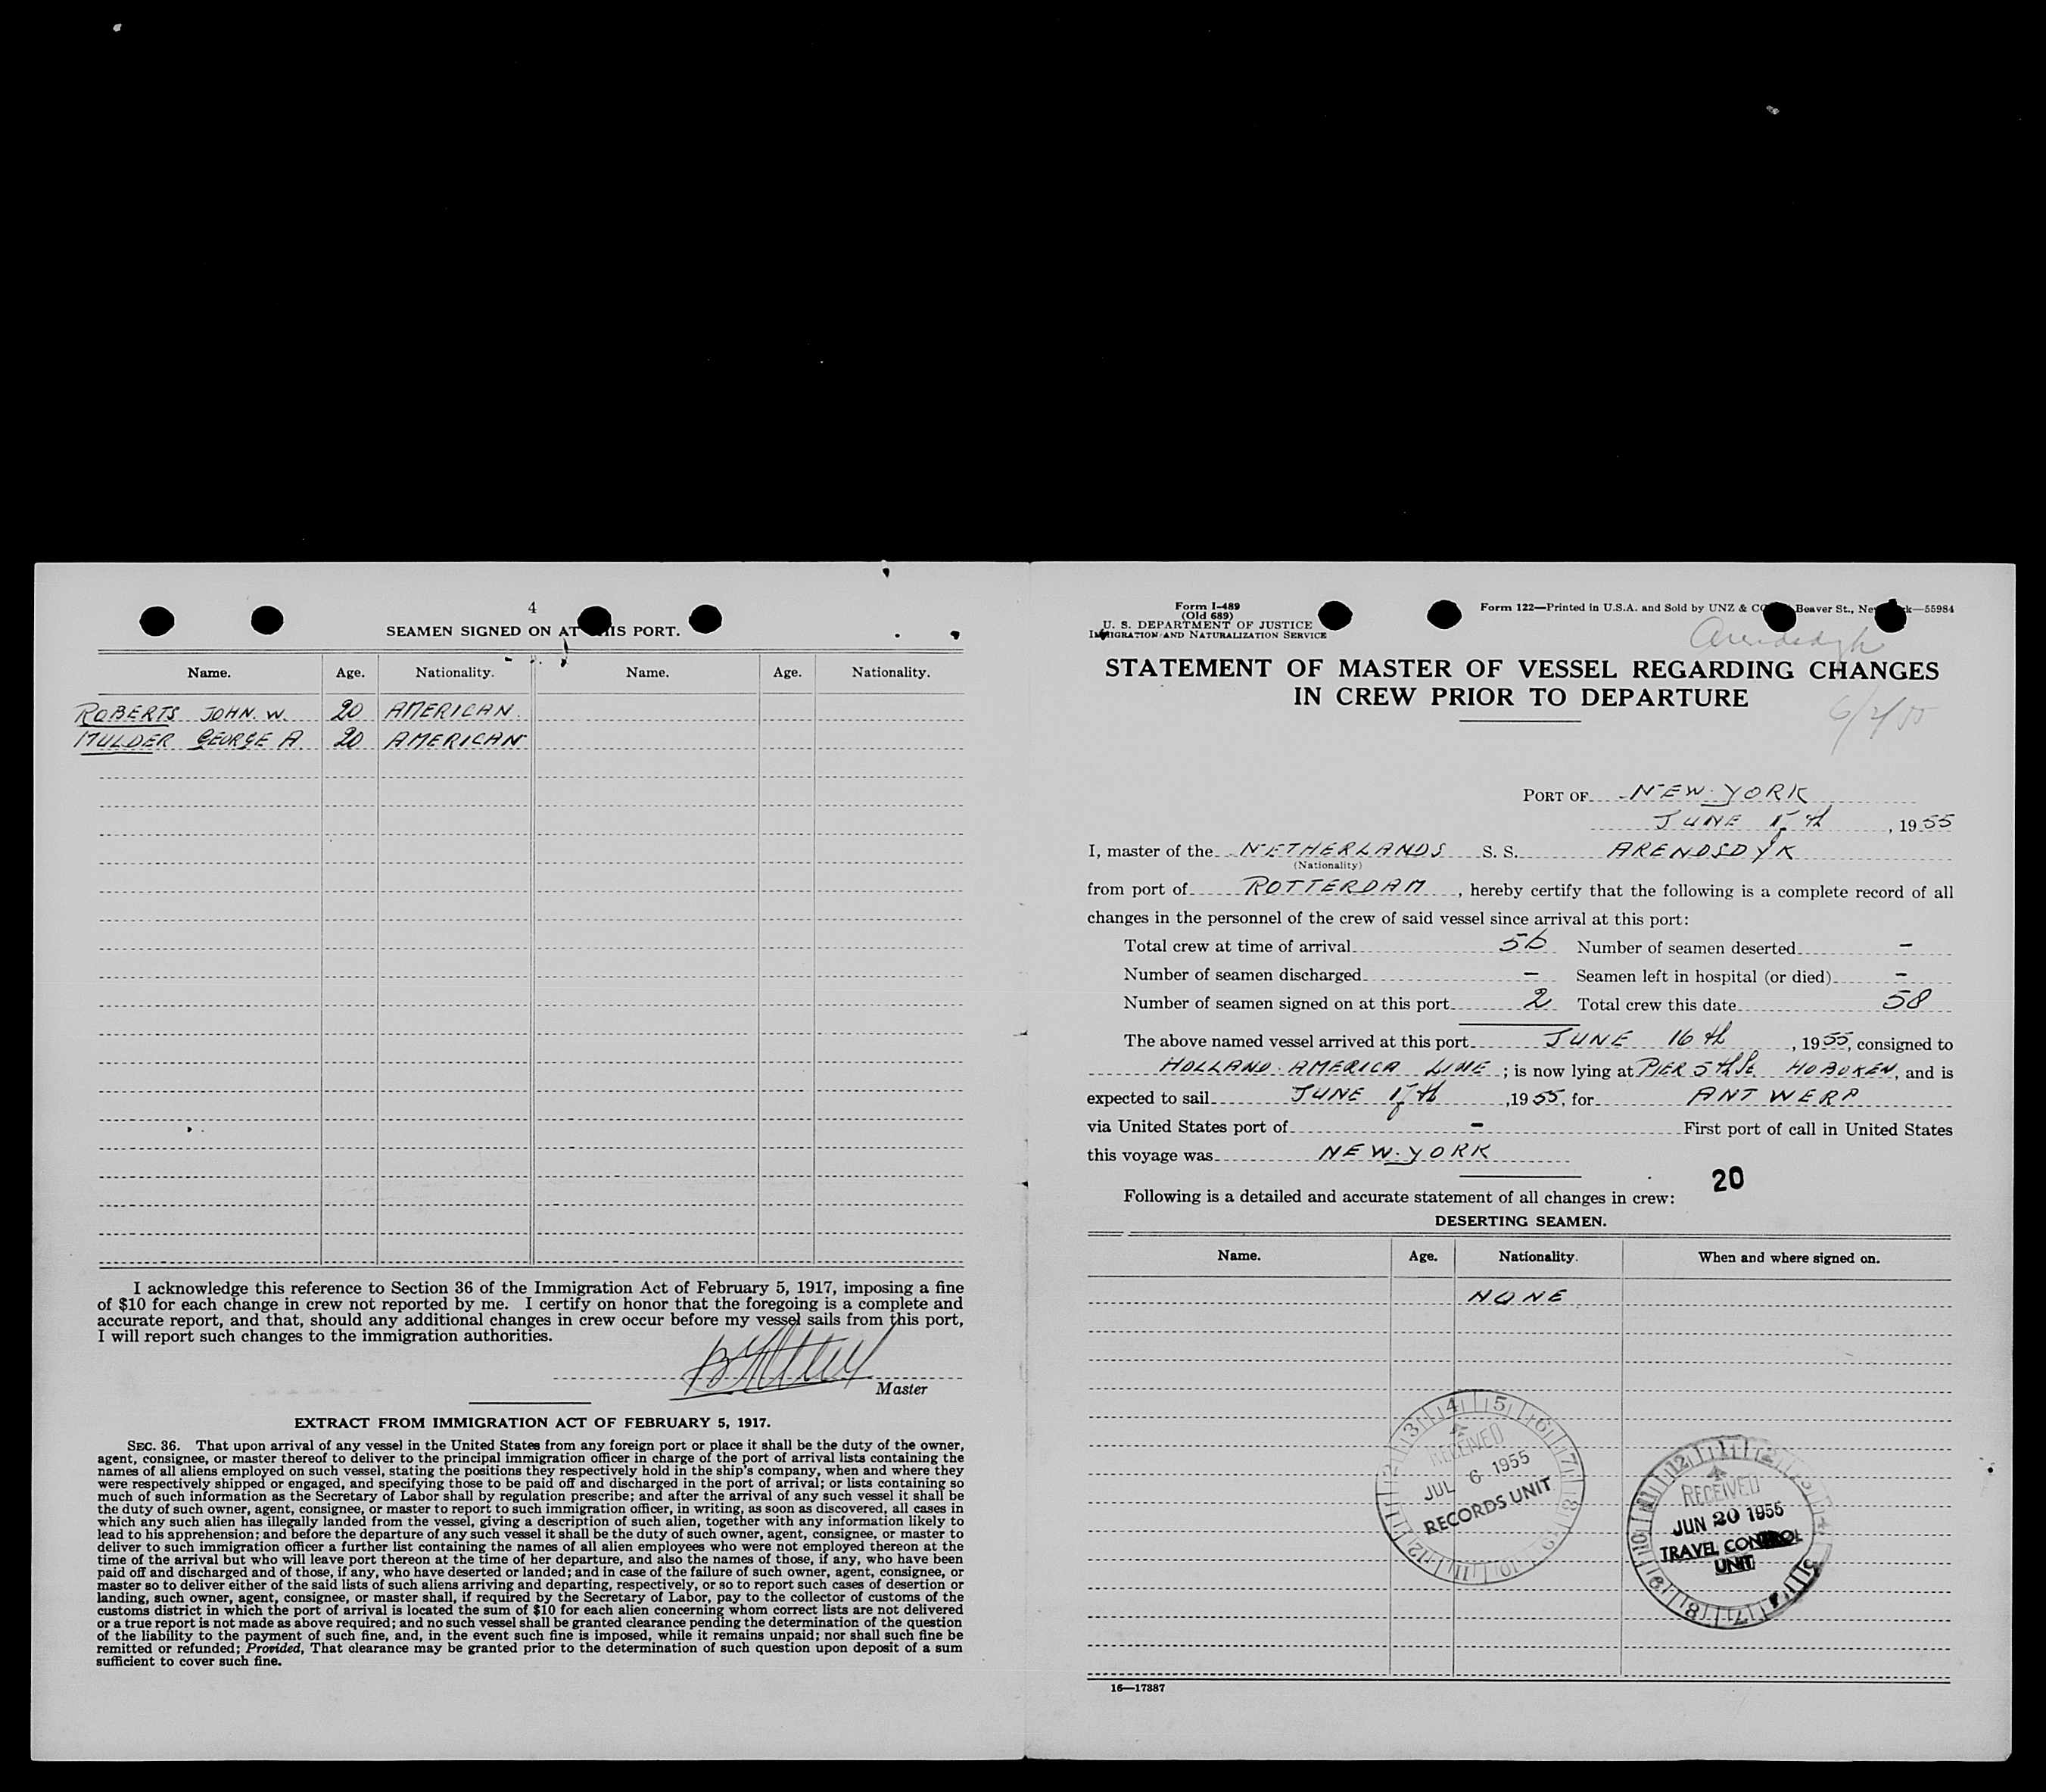 4
SEAMEN SIGNED ON AT THIS PORT.
Name. Age. Nationality. Name. Age. Nationality.
ROBERTS JOHN. W. 20 AMERICAN.
MULDER GEORGE A. 20 AMERICAN
I acknowledge this reference to Section 36 of the Immigration Act of February 5, 1917, imposing a fine
of $10 for each change in crew not reported by me. I certify on honor that the foregoing is a complete and
accurate report, and that, should any additional changes in crew occur before my vessel sails from this port,
I will report such changes to the immigration authorities.
Master
EXTRACT FROM IMMIGRATION ACT OF FEBRUARY 5, 1917.
SEC. 36. That upon arrival of any vessel in the United States from any foreign port or place it shall be the duty of the owner,
agent, consignee, or master thereof to deliver to the principal immigration officer in charge of the port of arrival lists containing the
names of all aliens employed on such vessel, stating the positions they respectively hold in the ship's company, when and where they
were respectively shipped or engaged, and specifying those to be paid off and discharged in the port of arrival; or lists containing so
much of such information as the Secretary of Labor shall by regulation prescribe; and after the arrival of any such vessel it shall be
the duty of such owner, agent, consignee, or master to report to such immigration officer, in writing, as soon as discovered, all cases in
which any such alien has illegally landed from the vessel, giving a description of such alien, together with any information likely to
lead to his apprehension; and before the departure of any such vessel it shall be the duty of such owner, agent, consignee, or master to
deliver to such immigration officer a further list containing the names of all alien employees who were not employed thereon at the
time of the arrival but who will leave port thereon at the time of her departure, and also the names of those, if any, who have been
paid off and discharged and of those, if any, who have deserted or landed; and in case of the failure of such owner, agent, consignee, or
master so to deliver either of the said lists of such aliens arriving and departing, respectively, or so to report such cases of desertion or
landing, such owner, agent, consignee, or master shall, if required by the Secretary of Labor, pay to the collector of customs of the
customs district in which the port of arrival is located the sum of $10 for each alien concerning whom correct lists are not delivered
or a true report is not made as above required; and no such vessel shall be granted clearance pending the determination of the question
of the liability to the payment of such fine, and, in the event such fine is imposed, while it remains unpaid; nor shall such fine be
remitted or refunded; Provided, That clearance may be granted prior to the determination of such question upon deposit of a sum
sufficient to cover such fine.
Form I-489
(Old 689)
U. S. DEPARTMENT OF JUSTICE
IMMIGRATION AND NATURALIZATION SERVICE
Form 122—Printed in U.S.A. and Sold by UNZ & CO Beaver St., New York—55984
Arendsdyk
STATEMENT OF MASTER OF VESSEL REGARDING CHANGES
IN CREW PRIOR TO DEPARTURE
PORT OF NEW. YORK
JUNE , 1955
I, master of the NETHERLANDS S. S. ARENDSDYK
(Nationality)
from port of ROTTERDAM, hereby certify that the following is a complete record of all
changes in the personnel of the crew of said vessel since arrival at this port:
Total crew at time of arrival 56 Number of seamen deserted –
Number of seamen discharged – Seamen left in hospital (or died) –
Number of seamen signed on at this port 2 Total crew this date 58
The above named vessel arrived at this port JUNE 16 th, 1955, consigned to
HOLLAND. AMERICA LINE; is now lying at PIER 5th St. HOBOKEN, and is
expected to sail JUNE ,1955, for ANTWERP
via United States port of – First port of call in United States
this voyage was NEW. YORK
20
Following is a detailed and accurate statement of all changes in crew:
DESERTING SEAMEN.
Name. Age. Nationality. When and where signed on.
NONE
RECEIVED
JUL 6 1955
RECORDS UNIT
RECEIVED
JUN 20 1955
TRAVEL CONTROL
UNIT
16—17387